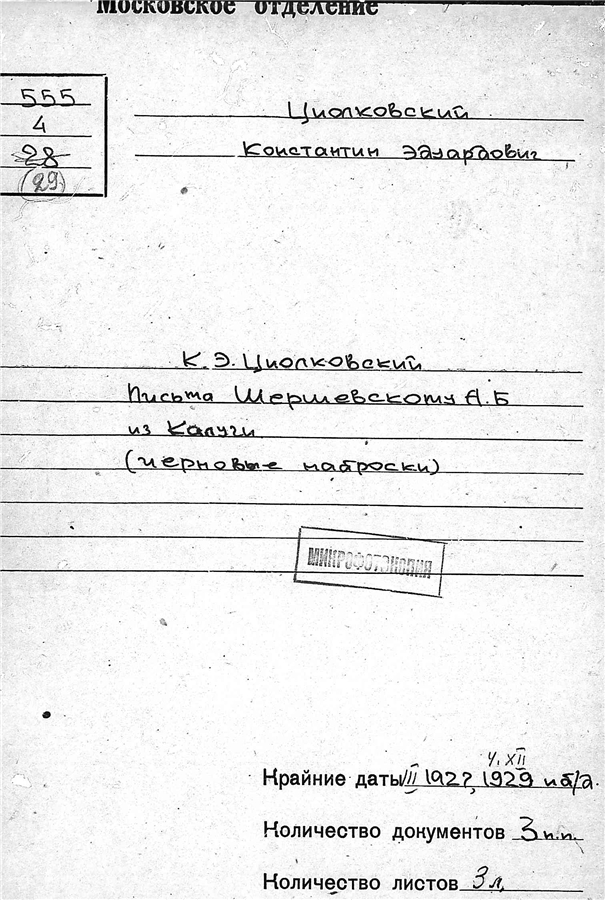 Московское отделение
555
4
28
(29)
Циолковский
Константин Эдуардович
К.Э.Циолковский
Письма Шершевскому А.Б
из Калуги
(черновые наброски)
МИКРОФОТОКОПИЯ
4.XII
Крайние даты III 1927, 1929 и б/д.
Количество документов 3 п.п.
Количество листов 3 л.